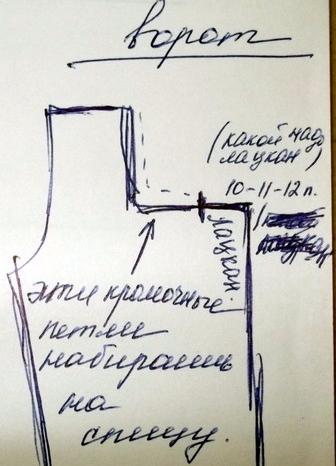 ворот
(какой надо
лацкан)
10-11-12 п.
лацкан.
эти кромочные
петли
набираешь
на
спицу.